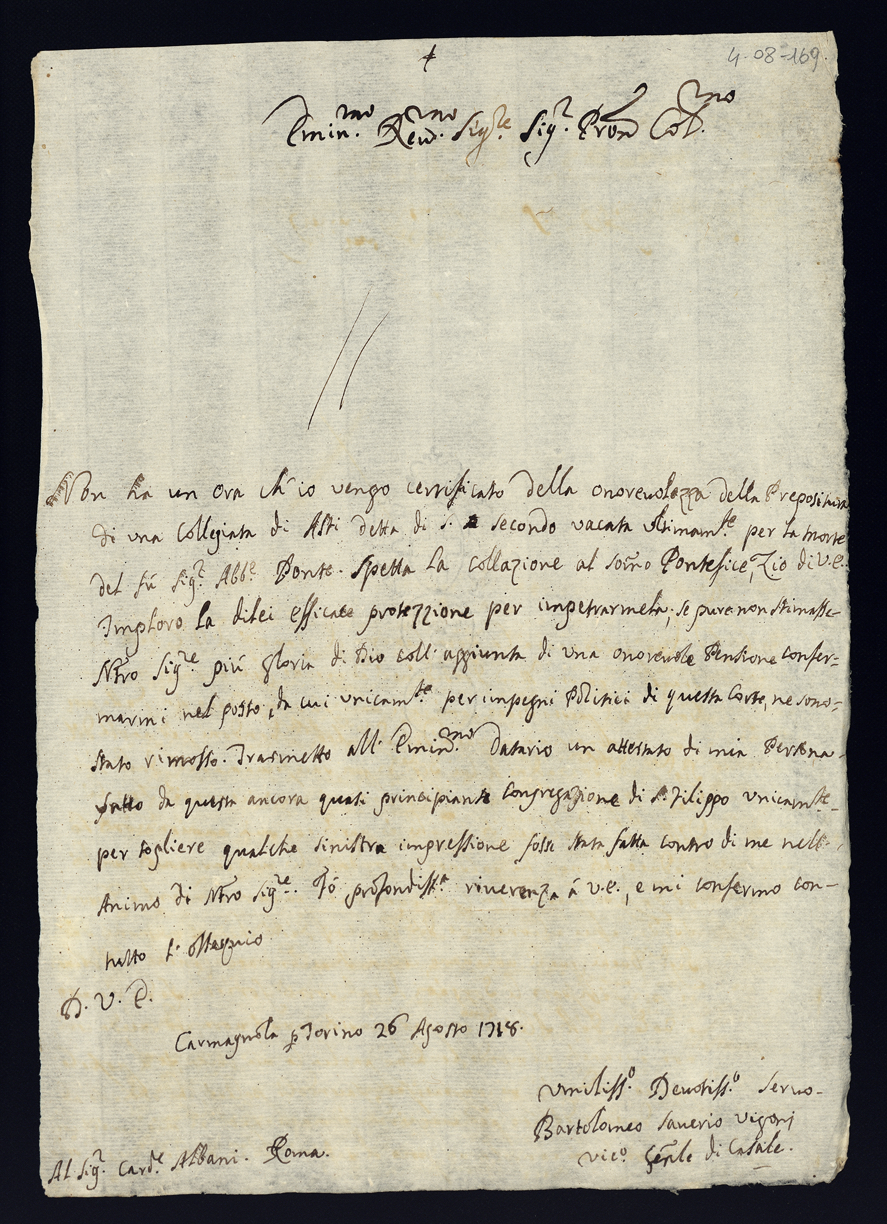 4-08-169.
Emin.mo Reu.mo Sig.re Sig.r Pron Col.mo
Non ha un ora ch'io vengo certificato della onorevolezza della Prepositura
di una Collegiata di Asti detta di S. Secondo vacata ultimam.te per la morte
del fù Sig.r Abb.e Ponte. Spetta la collazione al som̃o Pontefice, Zio di V.E.
Imploro la dilei efficace protezzione per impetrarmela; se pure non stimasse
Nr̃o Sig.re più gloria di Dio coll'aggiunta di una onorevole Pensione confer=
marmi nel posto, da cui unicam.te per impegni Politici di questa Corte, ne sono-
stato rimosso. Trasmetto all'Emin.mo Datario un attestato di mia Persona-
fatto da questa ancora quasi principiante Congregazione di S. Filippo unicam.te-
per togliere qualche sinistra impressione fosse stata fatta contro di me nell'
Animo di Nr̃o Sig.re. Fò profondiss.a riverenza à V.E., e mi confermo con-
tutto l'ossequio
D. V. E.
Carmagnola p Torino 26 Agosto 1718.
Umiliss.o Deuotiss.o Seruo-
Bartolomeo Sauerio Vigonj
Vic.o Gen̄le di Casale.
Al Sig.r Card.e Albani. Roma.